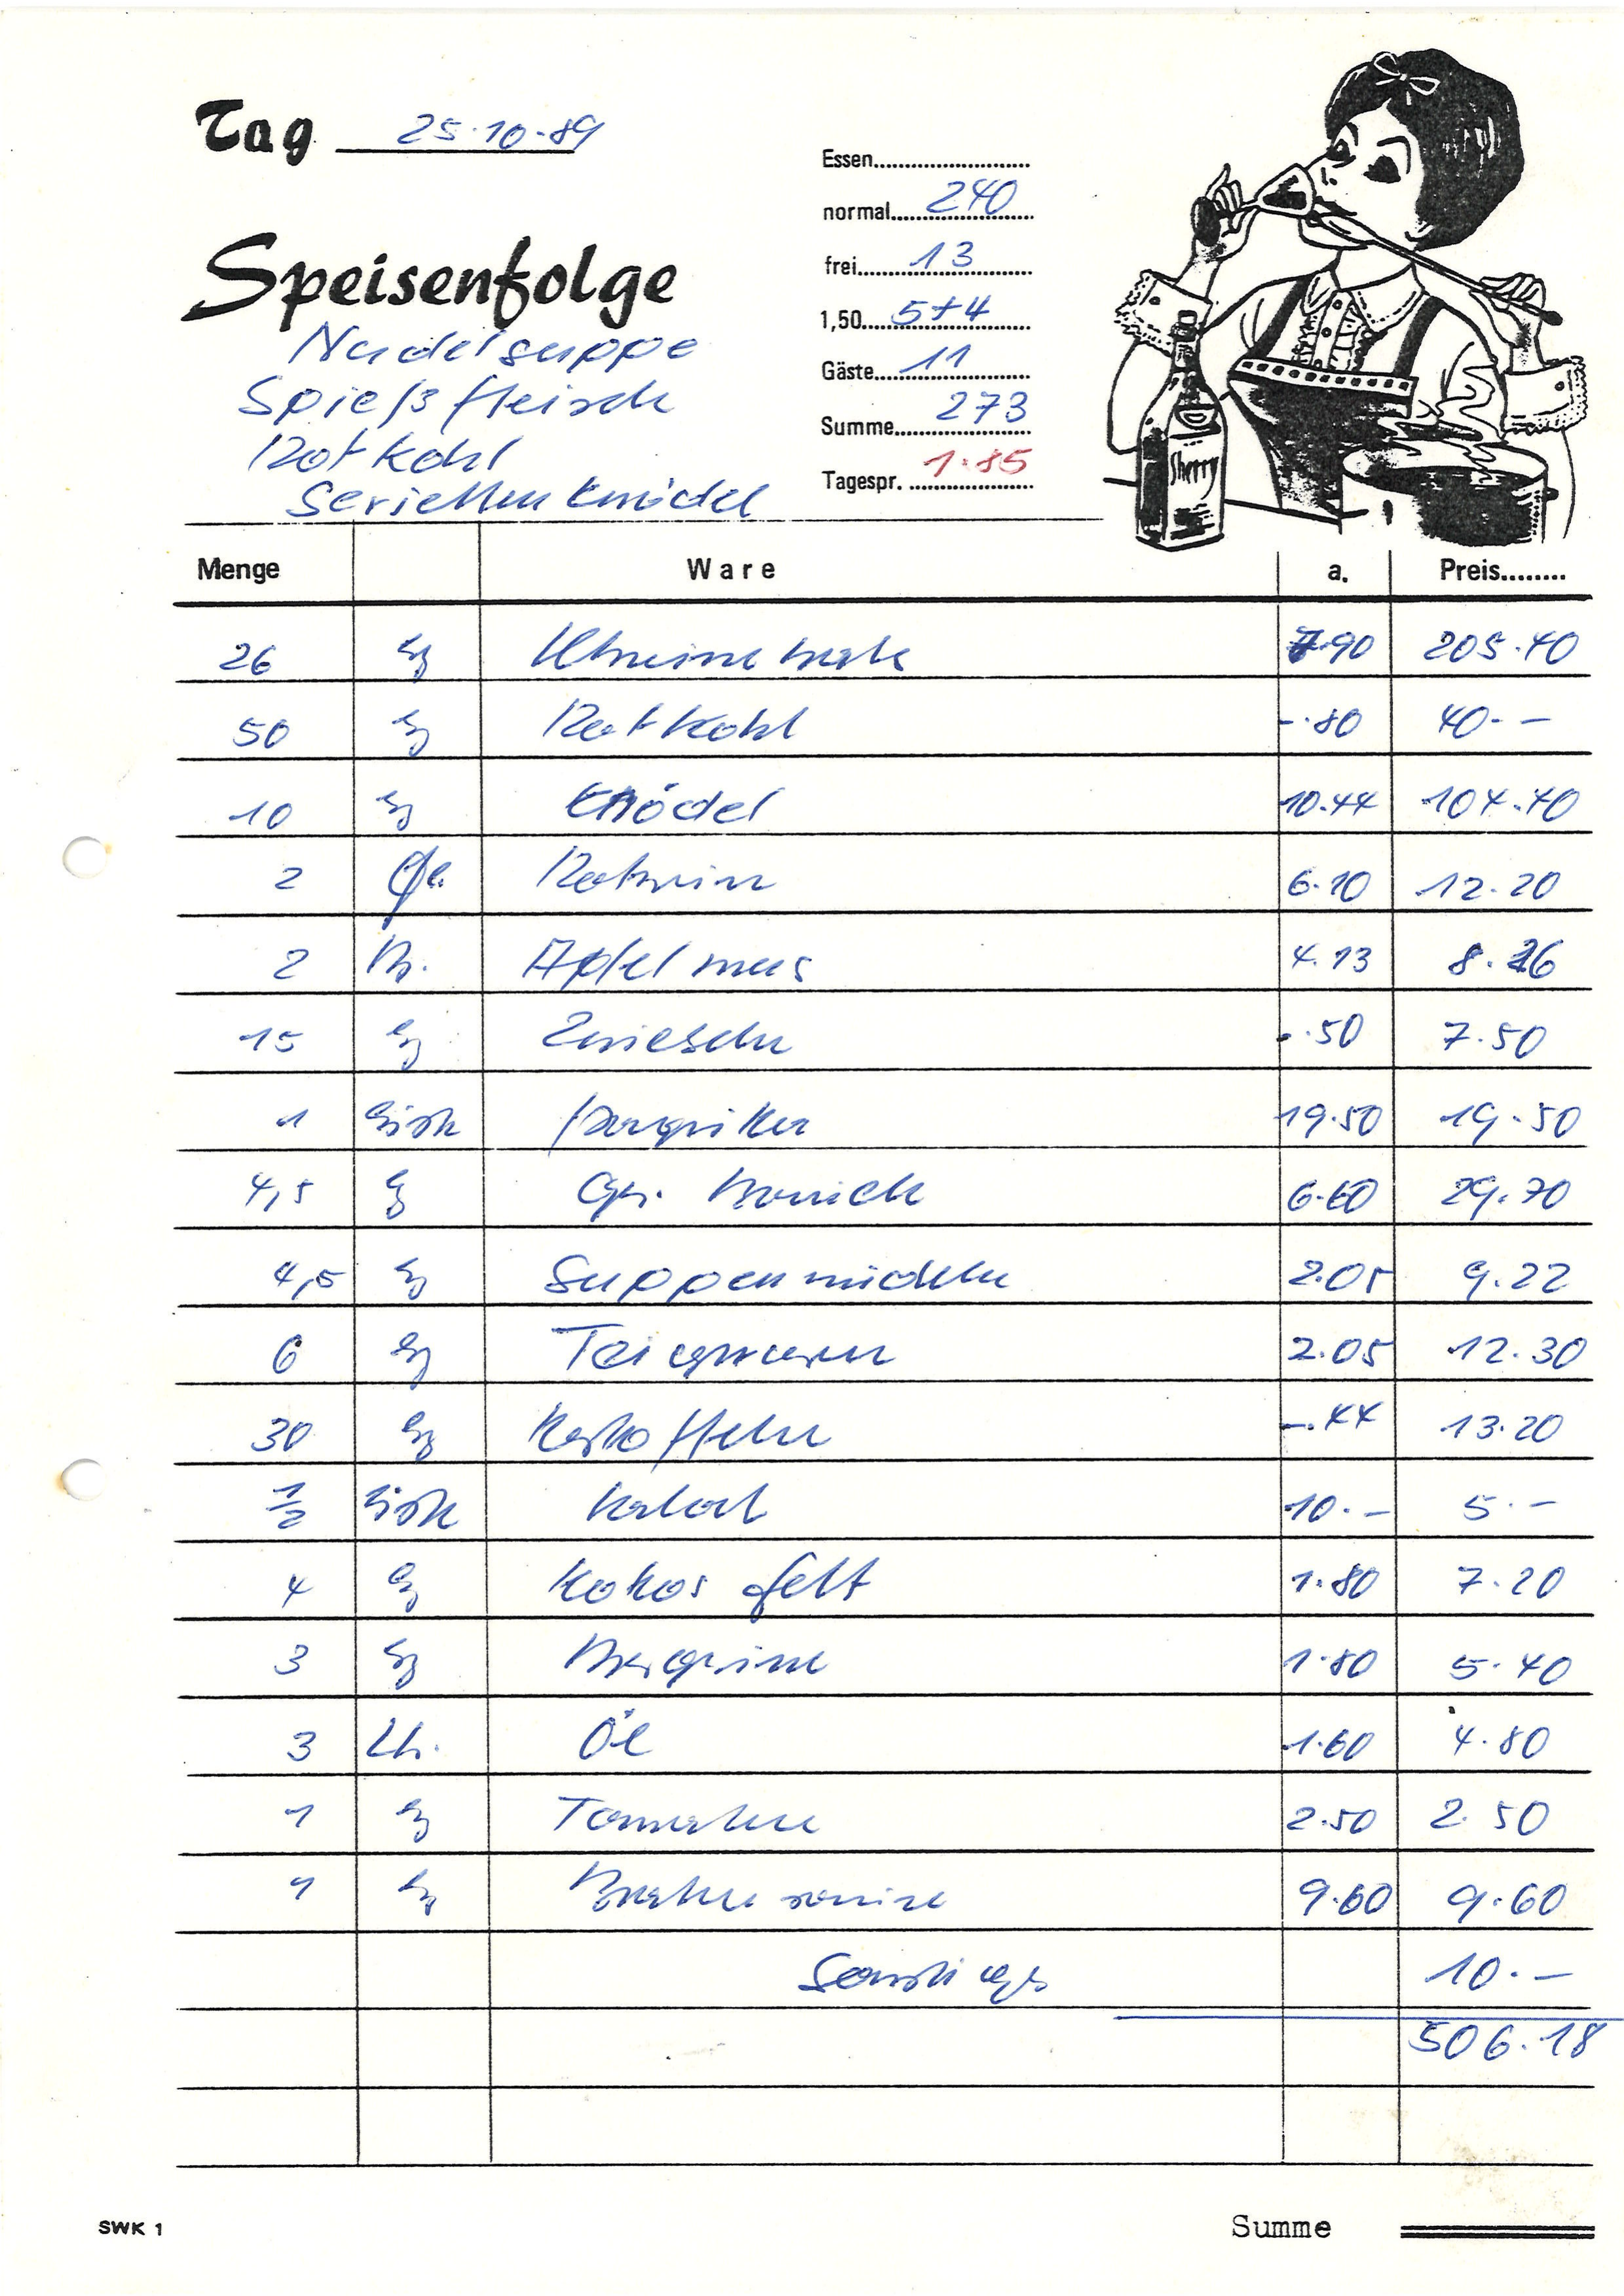 Tag 25.10.89
Essen
normal 240
frei 13
1,50 5+4
Gäste 11
Summe 273
Tagespr. 1.85
Speisenfolge
Nudelsuppe
Spießfleisch
Rotkohl
Serviettenknödel
Menge Ware a. Preis
26 kg 7.90 205.40
50 kg Rotkohl -.80 40.-
10 kg Knödel 10.44 104.40
2 Fl. Rotwein 6.10 12.20
2 Apfelmus 4.13 8.26
15 kg Zwiebeln -.50 7.50
1 Kiste Paprika 19.50 19.50
4,5 kg 6.60 29.70
4,5 kg Suppennudeln 2.05 9.22
6 kg Teigwaren 2.05 12.30
30 kg Kartoffeln -.44 13.20
1/2 Kiste 10.- 5.-
4 kg Kokosfett 1.80 7.20
3 kg Margarine 1.80 5.40
3 Ltr. Öl 1.60 4.80
1 kg Tomaten 2.50 2.50
1 kg Bratensauce 9.60 9.60
Sonstiges 10.-
506.18
SWK 1
Summe
Sherry